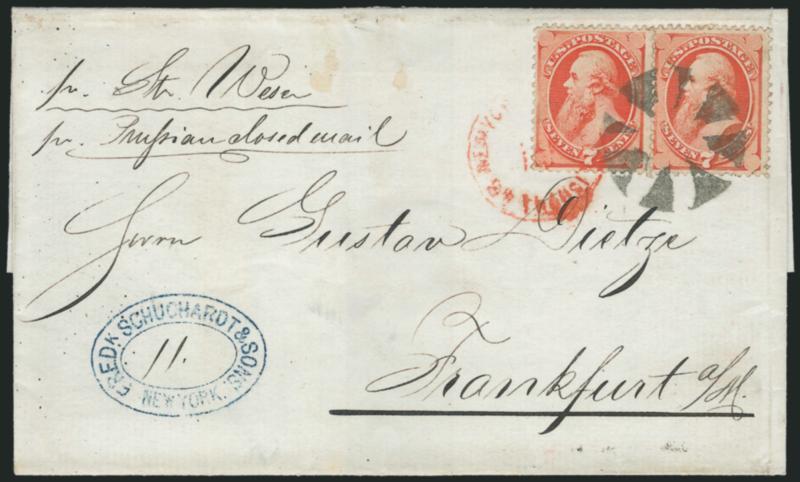 pr. Str. Weser
pr. Prussian closed mail
Herrn Gustav Dietze
Frankfurt a/M.
FREDK SCHUCHARDT & SONS.
11.
NEW YORK.
U.S. POSTAGE
SEVEN 7 CENTS
U.S. POSTAGE
SEVEN 7
NEW YORK